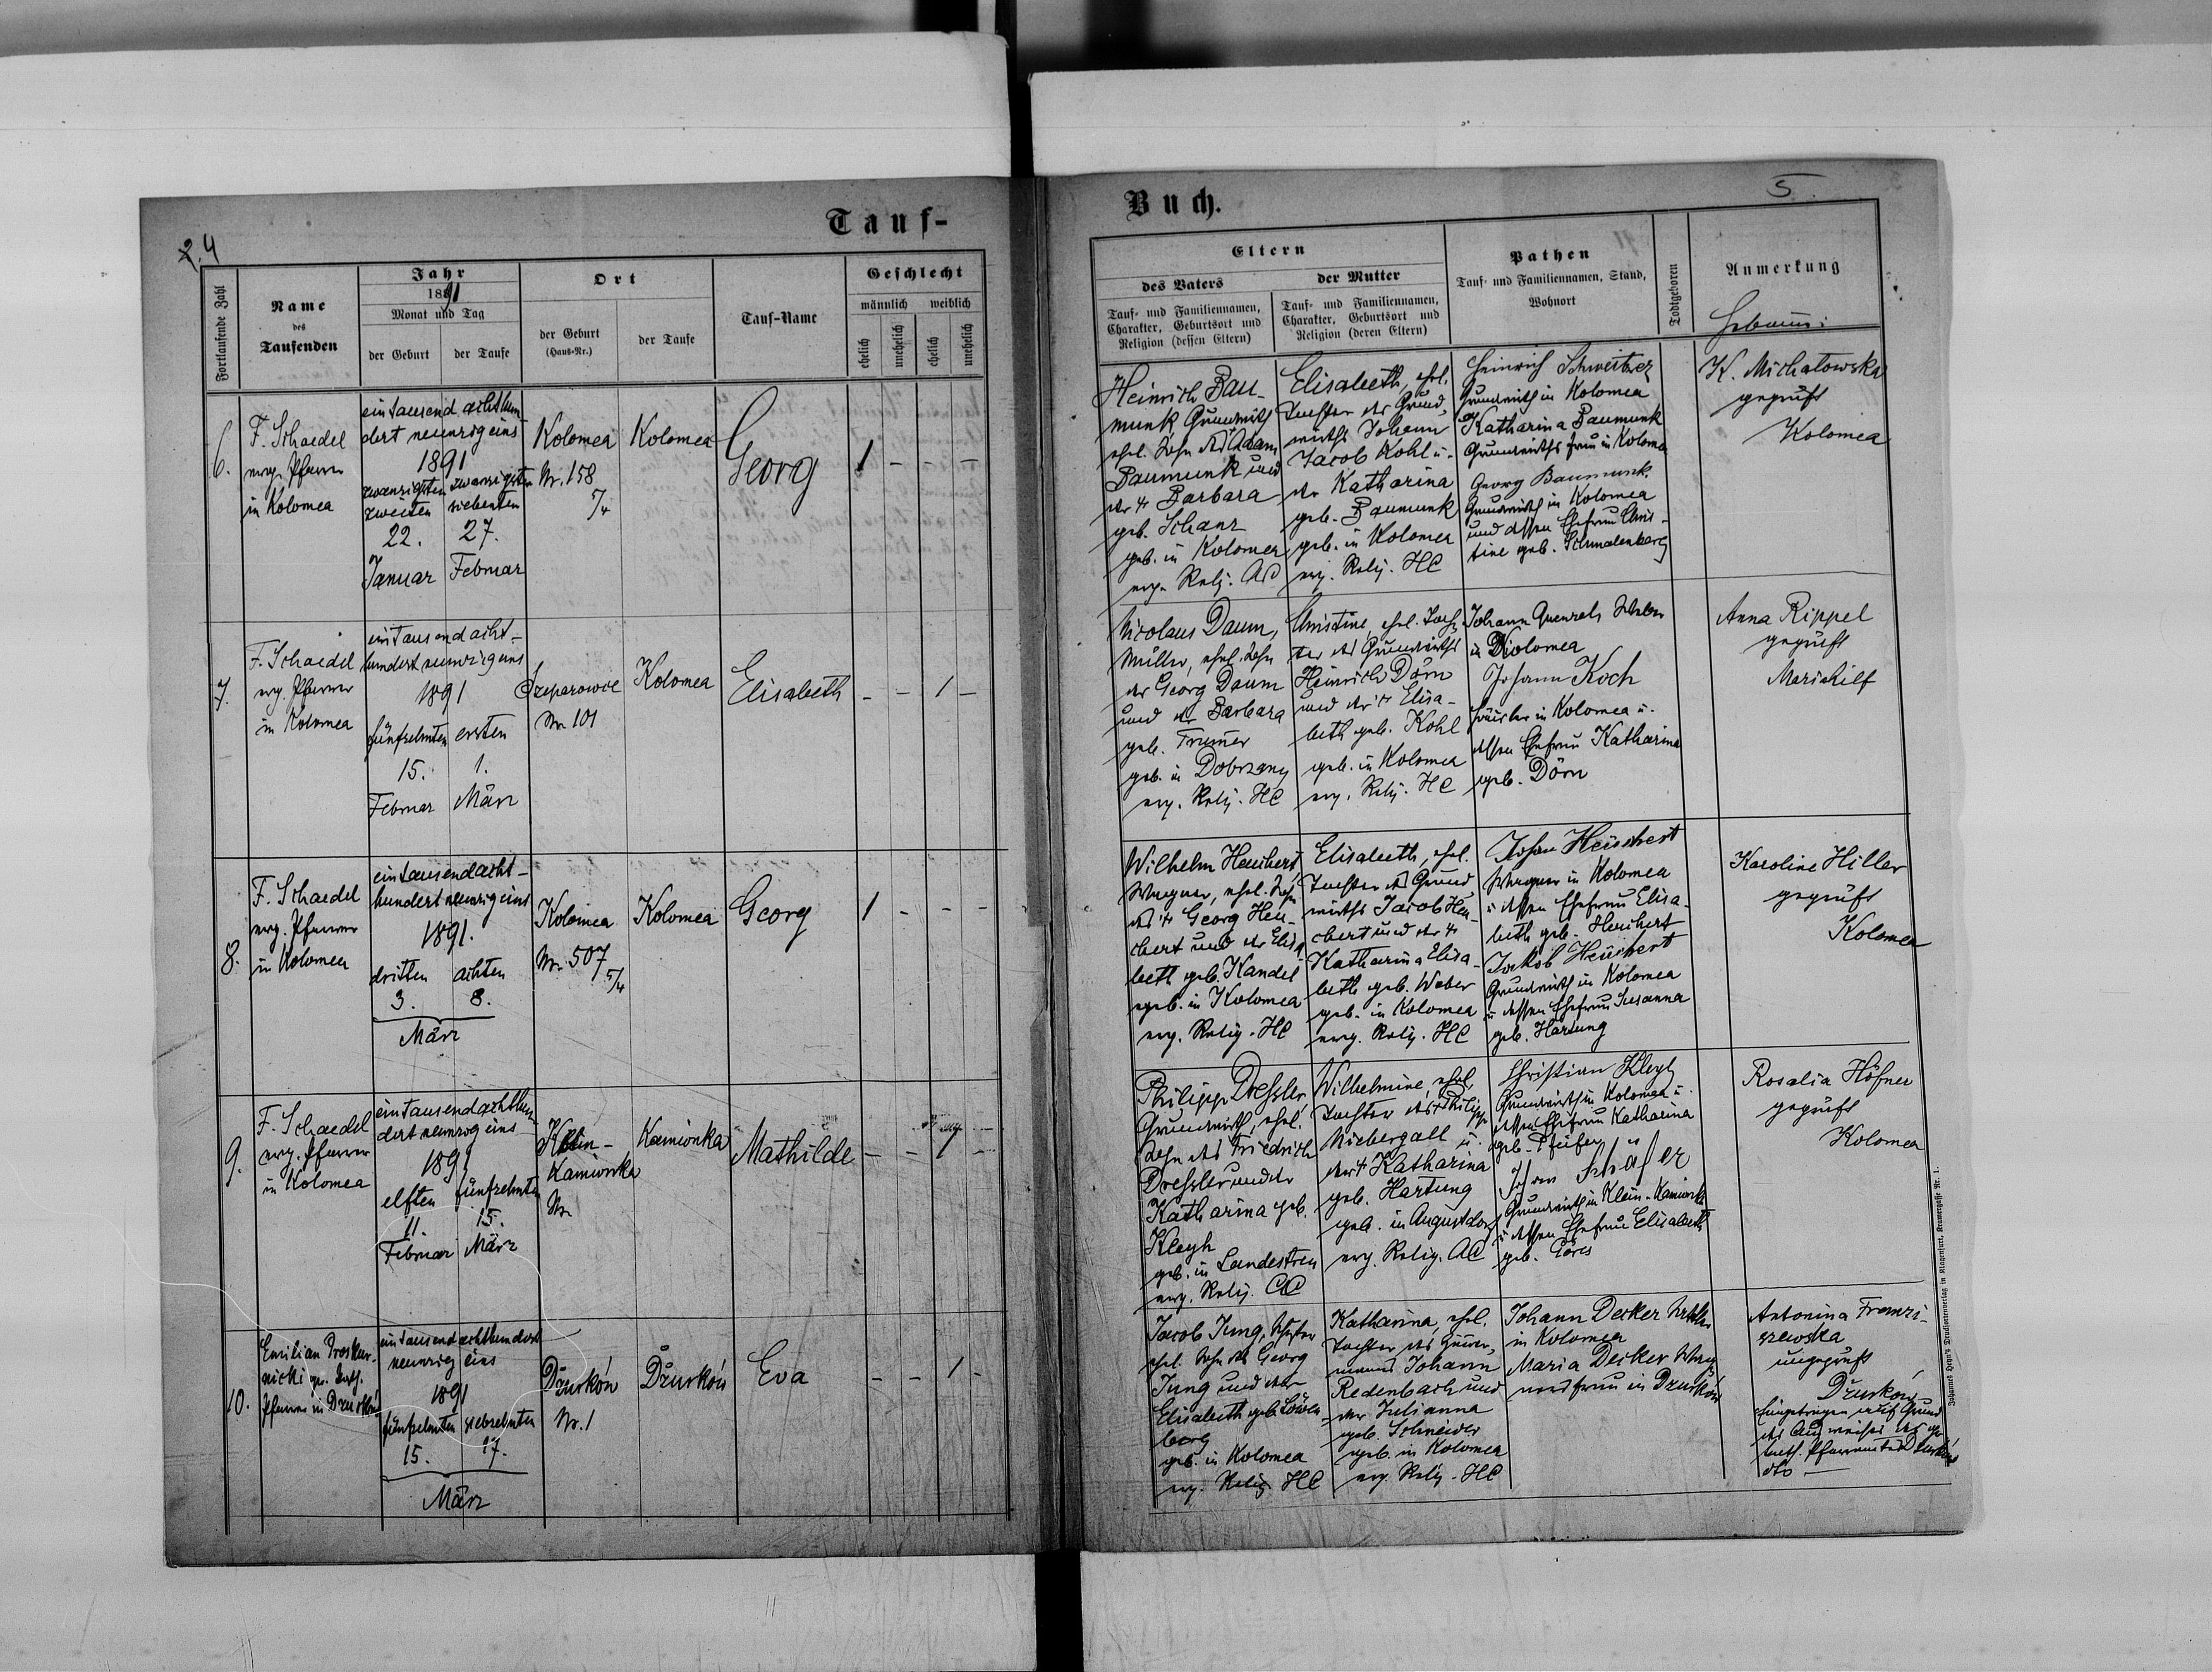 2. 4
Tauf-
Fortlaufende Zahl
Name
des
Taufenden
Jahr
1891
Monat und Tag
der Geburt
der Taufe
Ort
der Geburt
(Haus-Nr.)
der Taufe
Tauf-Name
Geschlecht
männlich
weiblich
ehelich
unehelich
ehelich
unehelich
6.
F. Schaedel
evg. Pfarrer
in Kolomea
ein tausend achthun
dert neunzig eins
1891
zwanzigsten
zweiten
22.
Januar
zwanzigsten
siebenten
27.
Februar
Kolomea
Nr. 158
5/4
Kolomea
Georg
1 - - -
7.
F. Schaedel
evg. Pfarrer
in Kolomea
ein tausend acht-
hundert neunzig eins
1891
fünfzehnten
15.
Februar
ersten
1.
März
Szeparowce
Nr. 101
Kolomea
Elisabeth
- - 1 -
8.
F. Schaedel
evg. Pfarrer
in Kolomea
ein tausend acht-
hundert neunzig eins
1891.
dritten
3.
achten
8.
März
Kolomea
Nr. 507
5/4
Kolomea
Georg
1 - - -
9.
F. Schaedel
evg. Pfarrer
in Kolomea
ein tausend achthun
dert neunzig eins
1891
elften
11.
Februar
fünfzehnten
15.
März
Klein-
Kamionka
Nr.
Kamionka
Mathilde
- - 1 -
10.
Emilian Proskur-
nicki gr. kath.
Pfarrer in Dżurków
ein tausend achthundert
neunzig eins
1891
fünfzehnten
15.
siebzehnten
17.
März
Dżurków
Nr. 1
Dżurków
Eva
- - 1 -
Buch.
5.
Eltern
des Vaters
Tauf- und Familiennamen,
Charakter, Geburtsort und
Religion (dessen Eltern)
der Mutter
Tauf- und Familiennamen,
Charakter, Geburtsort und
Religion (deren Eltern)
Pathen
Tauf- und Familiennamen, Stand,
Wohnort
Todtgeboren
Anmerkung
Hebamme:
Heinrich Bau-
munk Grundwirth
ehel. Sohn des Adam
Baumunk und
der † Barbara
geb. Schanz
geb. in Kolomea
evg. Relig. AC
Elisabeth, ehel.
Tochter des Grund-
wirths Johann
Jacob Kohl u.
der Katharina
geb. Baumunk
geb. in Kolomea
evg. Relig. HC
Heinrich Schweitzer
Grundwirth in Kolomea
Katharina Baumunk
Grundwirths frau in Kolomea
Georg Baumunk
Grundwirth in Kolomea
und dessen Ehefrau Chris-
tine geb. Schmalenberg
K. Michalowska
geprüft
Kolomea
Nicolaus Daum,
Müller, ehel. Sohn
des Georg Daum
und der Barbara
geb. Trumer
geb. in Dobrzany
evg. Relig. HC
Christine, ehel. Toch-
ter des Grundwirths
Heinrich Dörn
und der † Elisa-
beth geb. Kohl
geb. in Kolomea
evg. Relig. HC
Johann Weber
in Kolomea
Johann Koch
Häusler in Kolomea u.
dessen Ehefrau Katharina
geb. Dörn
Anna Rippel
geprüft
Mariahilf
Wilhelm Heuchert,
Wagner, ehel. Sohn
des † Georg Heu-
chert und der Elisa-
beth geb. Kandel
geb. in Kolomea
evg. Relig. HC
Elisabeth, ehel.
Tochter des Grund-
wirths Jacob Heu-
chert und der †
Katharina Elisa-
beth geb. Weber
geb. in Kolomea
evg. Relig. HC
Johann Heuchert
Wagner in Kolomea
u. dessen Ehefrau Elisa-
beth geb. Heuchert
Jakob Heuchert
Grundwirth in Kolomea
u. dessen Ehefrau Susanna
geb. Hartung
Karoline Hiller
geprüft
Kolomea
Philipp Dressler,
Grundwirth, ehel.
Sohn des Friedrich
Dressler und der
Katharina geb.
Klegh
geb. in Landestreu
evg. Relig. AC
Wilhelmine, ehel.
Tochter des † Philipp
Niebergall u.
der † Katharina
geb. Hartung
geb. in Augustdorf
evg. Relig. AC
Christian Klegh
Grundwirth in Kolomea u.
dessen Ehefrau Katharina
geb. Pfeifer
Johann Schäfer
Grundwirth in Klein-Kamionka
u. dessen Ehefrau Elisabeth
geb. Göres
Rosalia Höfner
geprüft
Kolomea
Jacob Jung,
ehel. Sohn des Georg
Jung und der
Elisabeth geb. Löwen-
berg
geb. in Kolomea
evg. Relig. HC
Katharina, ehel.
Tochter des
Johann
Redenbach und
der Julianna
geb. Schneider
geb. in Kolomea
evg. Relig. HC
Johann Decker
in Kolomea
Maria Decker Wag-
nersfrau in Dżurków
Antonina Franzi-
szewska
ungeprüft
Dżurków
Eingetragen auf Grund
des Ausweises des gr.
kath. Pfarramtes Dżurków
dto —
Johannes Heyn's Drucksortenverlag in Klagenfurt, Kramergasse Nr. 1.